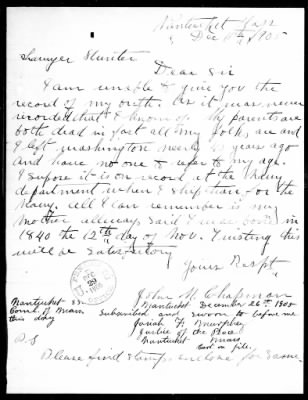 Nantucket Mass
Dec 1905
Lawyer Hunter
Dear Sir
I am unable to give you the
record of my birth. As it was never
recorded that I know of My parents are
both dead in fact all my folk, are and
I left washington nearly years ago
and have no one to refer to my age.
I supose it is on record at the Navy
department when I shiped there for the
Navy. all I can remember is my
mother allways said I was born in
1840 the 12th day of Nov. Trusting this
will be Satisfactory
Yours Respt
John M Chapman
Nantucket ss
Nantucket December 26th 1905
Com. of Mass
Subscribed and sworn to before me
this day
Josiah F Murphey
Justice of the Peace
Nantucket Mass
on file
P.S
Please find stamp enclose for same